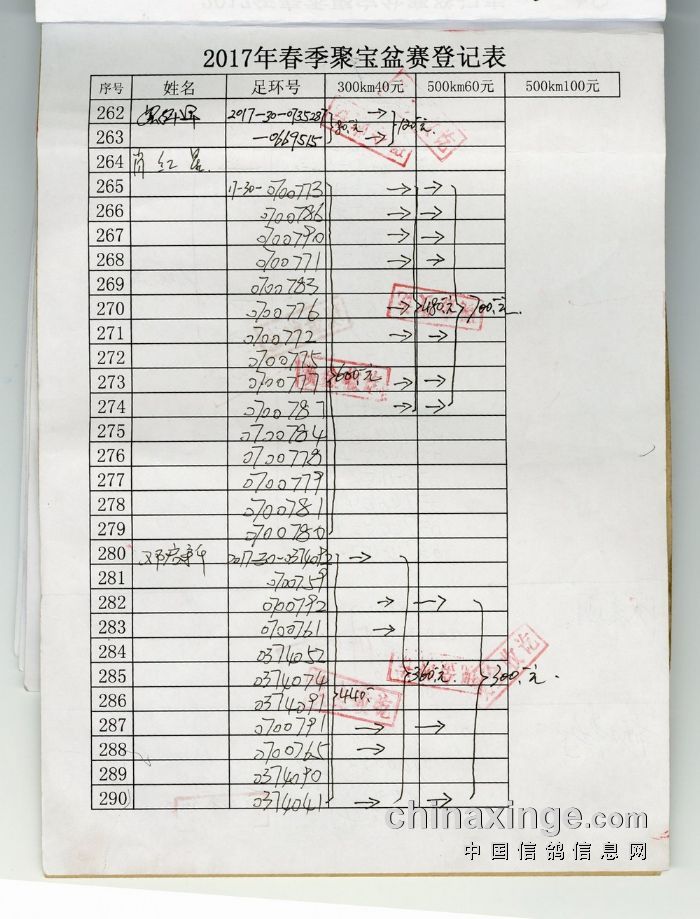 2017年春季聚宝盆赛登记表
序号 姓名 足环号 300km40元 500km60元 500km100元
262 2017-30-0735287 → →
263 -0669515 80.元 → 120.元
264 肖红
265 17-30-0700773 → →
266 0700786 → →
267 0700790 → →
268 0700771 → →
269 0700783
270 0700776 → 480.元 700.元
271 0700772 → →
272 0700775
273 0700777 600.元 → →
274 0700787 → →
275 0700784
276 0700778
277 0700779
278 0700781
279 0700780
280 2017-30-0374092 →
281 0700759
282 0700792 → →
283 0700761 →
284 0374052
285 0374074 360.元 300.元
286 0374091 440.
287 0700791 → →
288 0700765 →
289 0374090
290 0374041 → →
chinaxinge.com
中国信鸽信息网